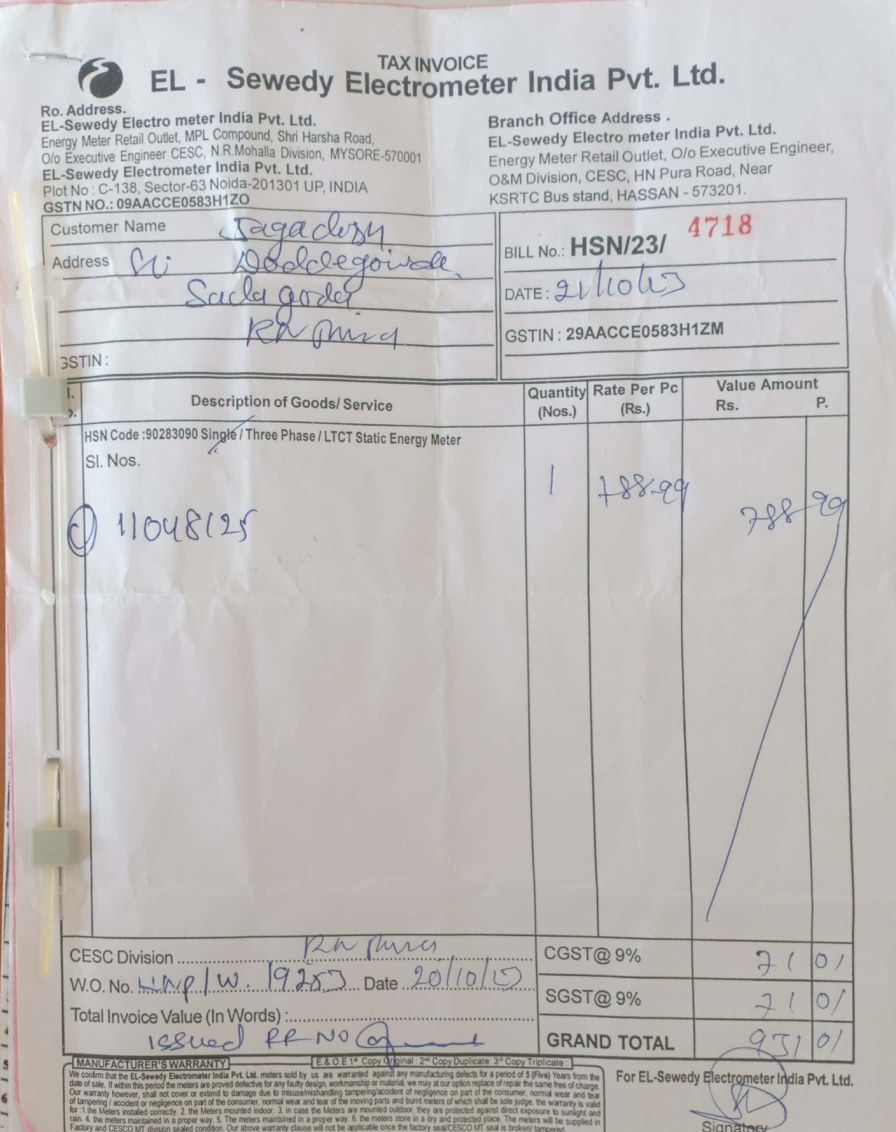 TAX INVOICE
EL - Sewedy Electrometer India Pvt. Ltd.
Ro. Address.
EL-Sewedy Electro meter India Pvt. Ltd.
Energy Meter Retail Outlet, MPL Compound, Shri Harsha Road,
O/o Executive Engineer CESC, N.R.Mohalla Division, MYSORE-570001
EL-Sewedy Electrometer India Pvt. Ltd.
Plot No : C-138, Sector-63 Noida-201301 UP, INDIA
GSTN NO.: 09AACCE0583H1ZO
Branch Office Address .
EL-Sewedy Electro meter India Pvt. Ltd.
Energy Meter Retail Outlet, O/o Executive Engineer,
O&M Division, CESC, HN Pura Road, Near
KSRTC Bus stand, HASSAN - 573201.
Customer Name Jagadesh
Address
GSTIN :
BILL No.: HSN/23/ 4718
DATE : 21/10/23
GSTIN : 29AACCE0583H1ZM
Description of Goods/ Service
Quantity (Nos.)
Rate Per Pc (Rs.)
Value Amount
Rs. P.
HSN Code :90283090 Single / Three Phase / LTCT Static Energy Meter
Sl. Nos.
1 788-99 788-99
11048125
CESC Division
W.O. No. Date 20/10/23
Total Invoice Value (In Words) :
issued RR NO
CGST@ 9% 71 01
SGST@ 9% 71 01
GRAND TOTAL 931 01
MANUFACTURER'S WARRANTY
E & O E 1st Copy Original : 2nd Copy Duplicate: 3rd Copy Triplicate :
We confirm that the EL-Sewedy Electrometer India Pvt. Ltd. meters sold by us are warranted against any manufacturing defects for a period of 5 (Five) Years from the
date of sale. If within this period the meters are proved defective for any faulty design, workmanship or material, we may at our option replace of repair the same free of charge.
Our warranty however, shall not cover or extend to damage due to misuse/mishandling tampering/accident of negligence on part of the consumer, normal wear and tear
of tampering / accident or negligence on part of the consumer, normal wear and tear of the moving parts and burnt meters of which shall be sole judge. the warranty is valid
for :1.the Meters installed correctly. 2. the Meters mounted indoor. 3. in case the Meters are mounted outdoor, they are protected against direct exposure to sunlight and
rain. 4. the meters maintained in a proper way. 5. The meters maintained in a proper way. 6. the meters store in a dry and protected place. The meters will be supplied in
Factory and CESCO MT division sealed condition. Our above warranty clause will not be applicable once the factory seal/CESCO MT seal is broken/ tampered.
For EL-Sewedy Electrometer India Pvt. Ltd.
Signatory